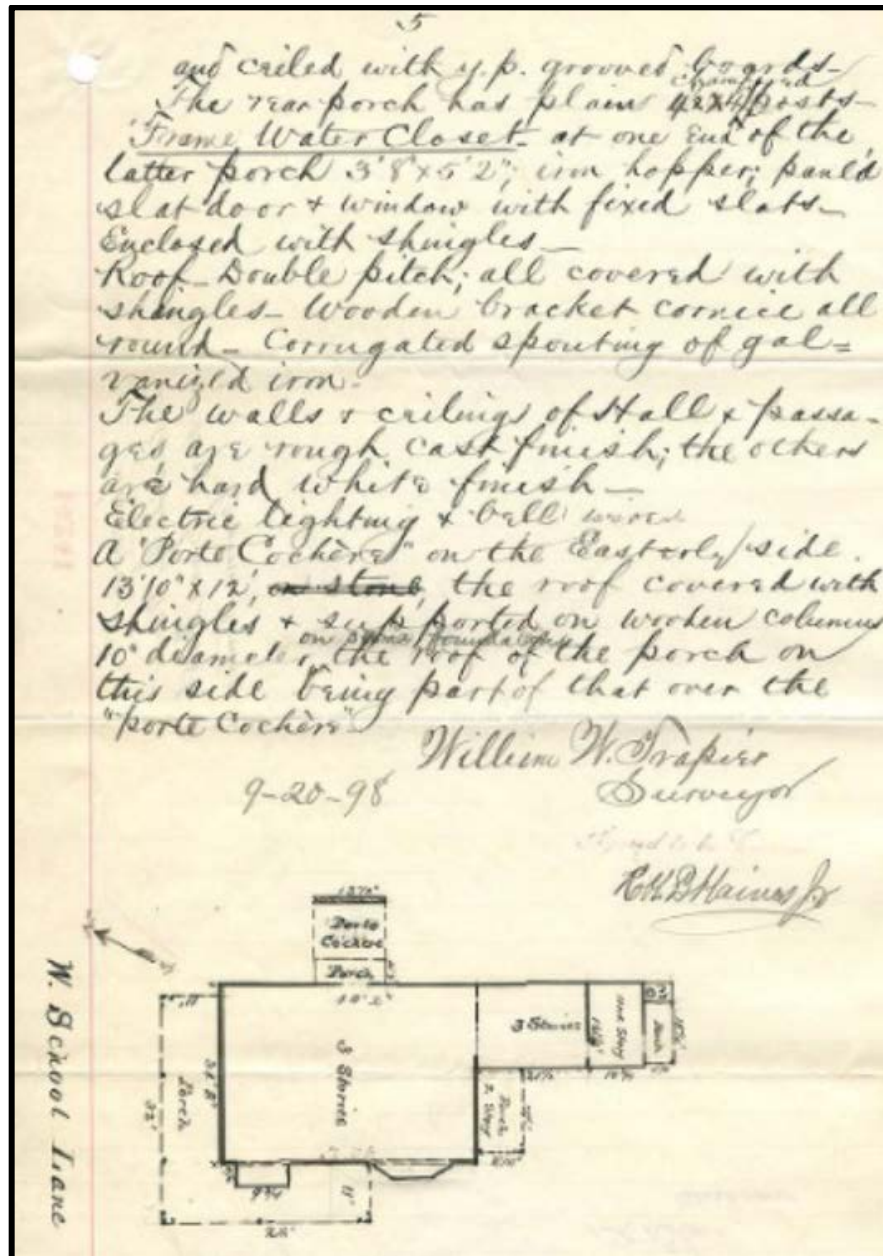 5
and ceiled with y.p. grooved boards-
chamfered
The rear porch has plain posts-
Frame Water Closet- at one End of the
latter porch 3'8"x5'2"; iron hopper; panl'd
slat door & window with fixed slats-
Enclosed with shingles-
Roof- Double pitch; all covered with
shingles- Wooden bracket cornice all
round- Corrugated spouting of gal=
vanized iron-
The walls & ceilings of Hall & passa-
ges are rough cast finish; the others
are hard white finish-
Electric lighting & bell wires
A "Porte Cochère" on the Easterly side.
13'10"x12', on stone, the roof covered with
shingles & supported on wooden columns
on stone foundation
10" diameter, the roof of the porch on
this side being part of that over the
"porte Cochère"
William W. Trapier
Surveyor
9-20-98
R.B. Haines Jr
Porte
Cochere
Porch
W. School Lane
11'
Porch
32'
3 Stories
3 Stories
One Story
Porch
2 Story
11'